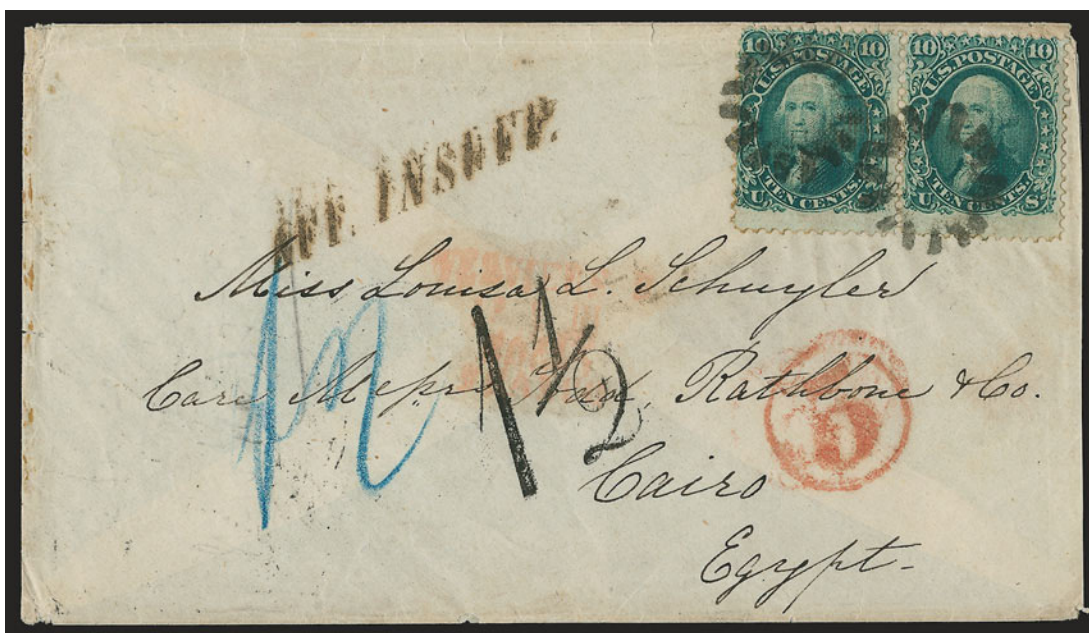 10 10
U.S. POSTAGE
TEN CENTS.
U S
10 10
U.S. POSTAGE
TEN CENTS.
U S
AFF. INSUFF.
Miss Louisa L. Schuyler
Care Messrs Rathbone & Co.
Cairo
Egypt.
1 1/2